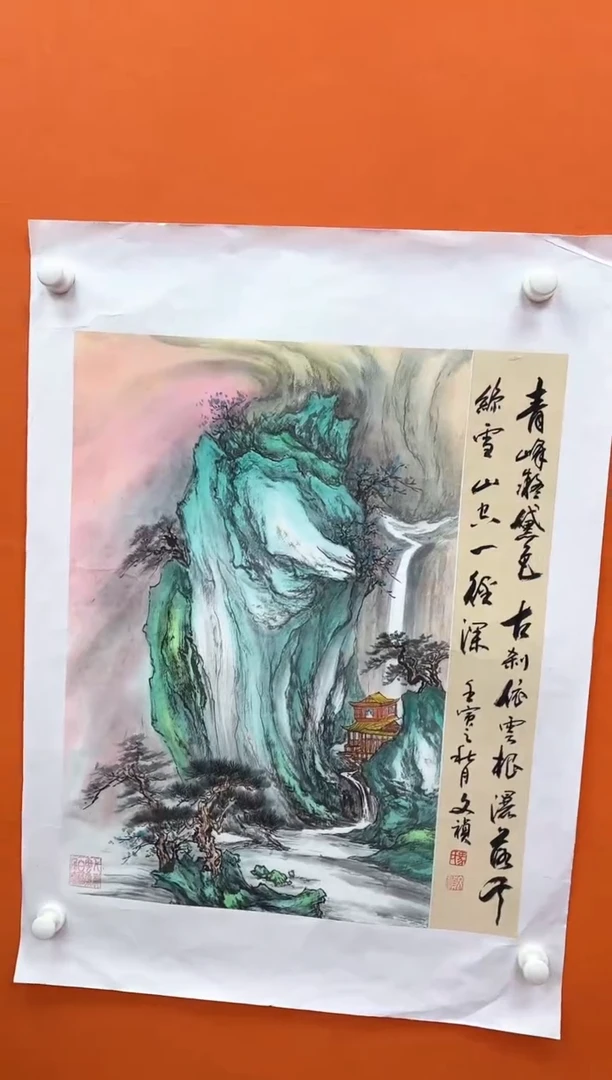 青峰凝黛色 古刹依雲根 瀑落千
絲雪 山空一徑深
壬寅之秋月 文禎